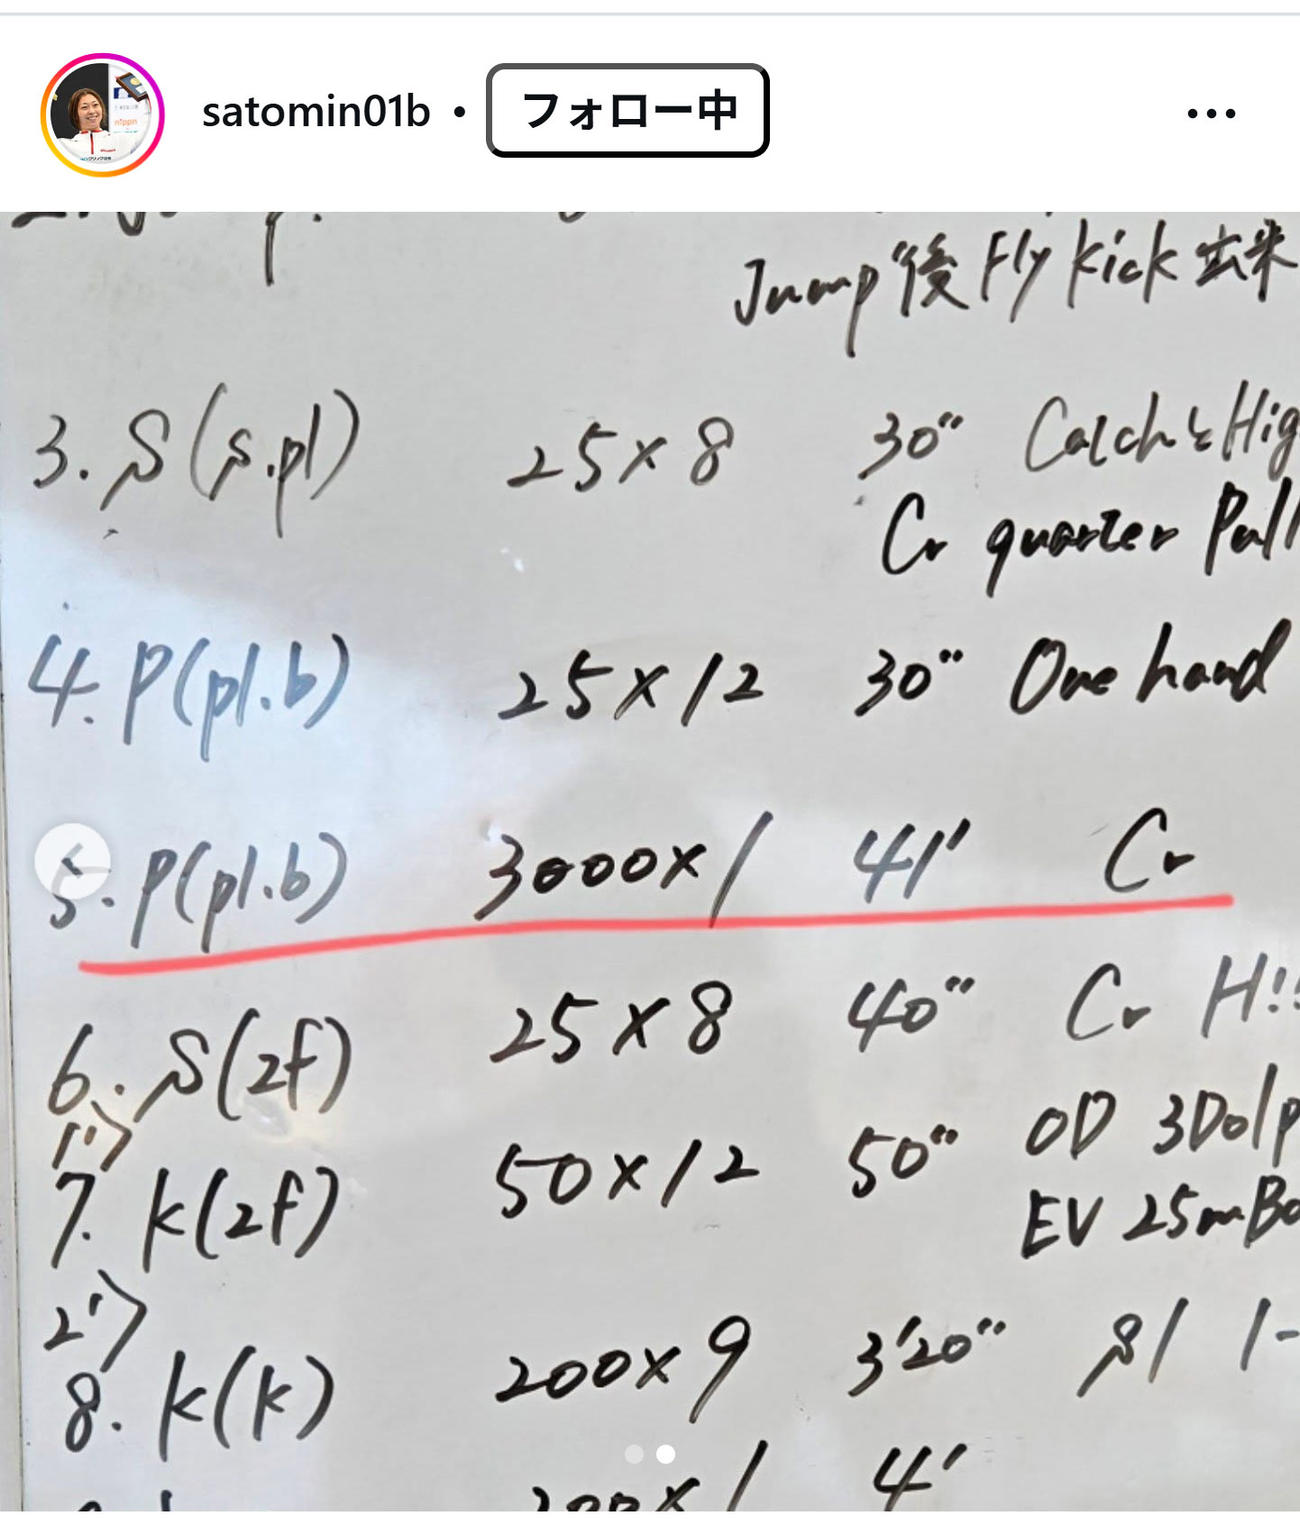 satomin01b • フォロー中
Jump後 Fly kick 出来
3. S(s.pl) 25×8 30" CatchとHig
Cr quarter Pull
4. P(pl.b) 25×12 30" One hand
5. P(pl.b) 3000×1 41' Cr
6. S(2f) 25×8 40" Cr H!!
1')
7. K(2f) 50×12 50" OD 3Dolp
EV 25m Ba
2')
8. K(K) 200×9 3'20" S1 1-
200×1 4'